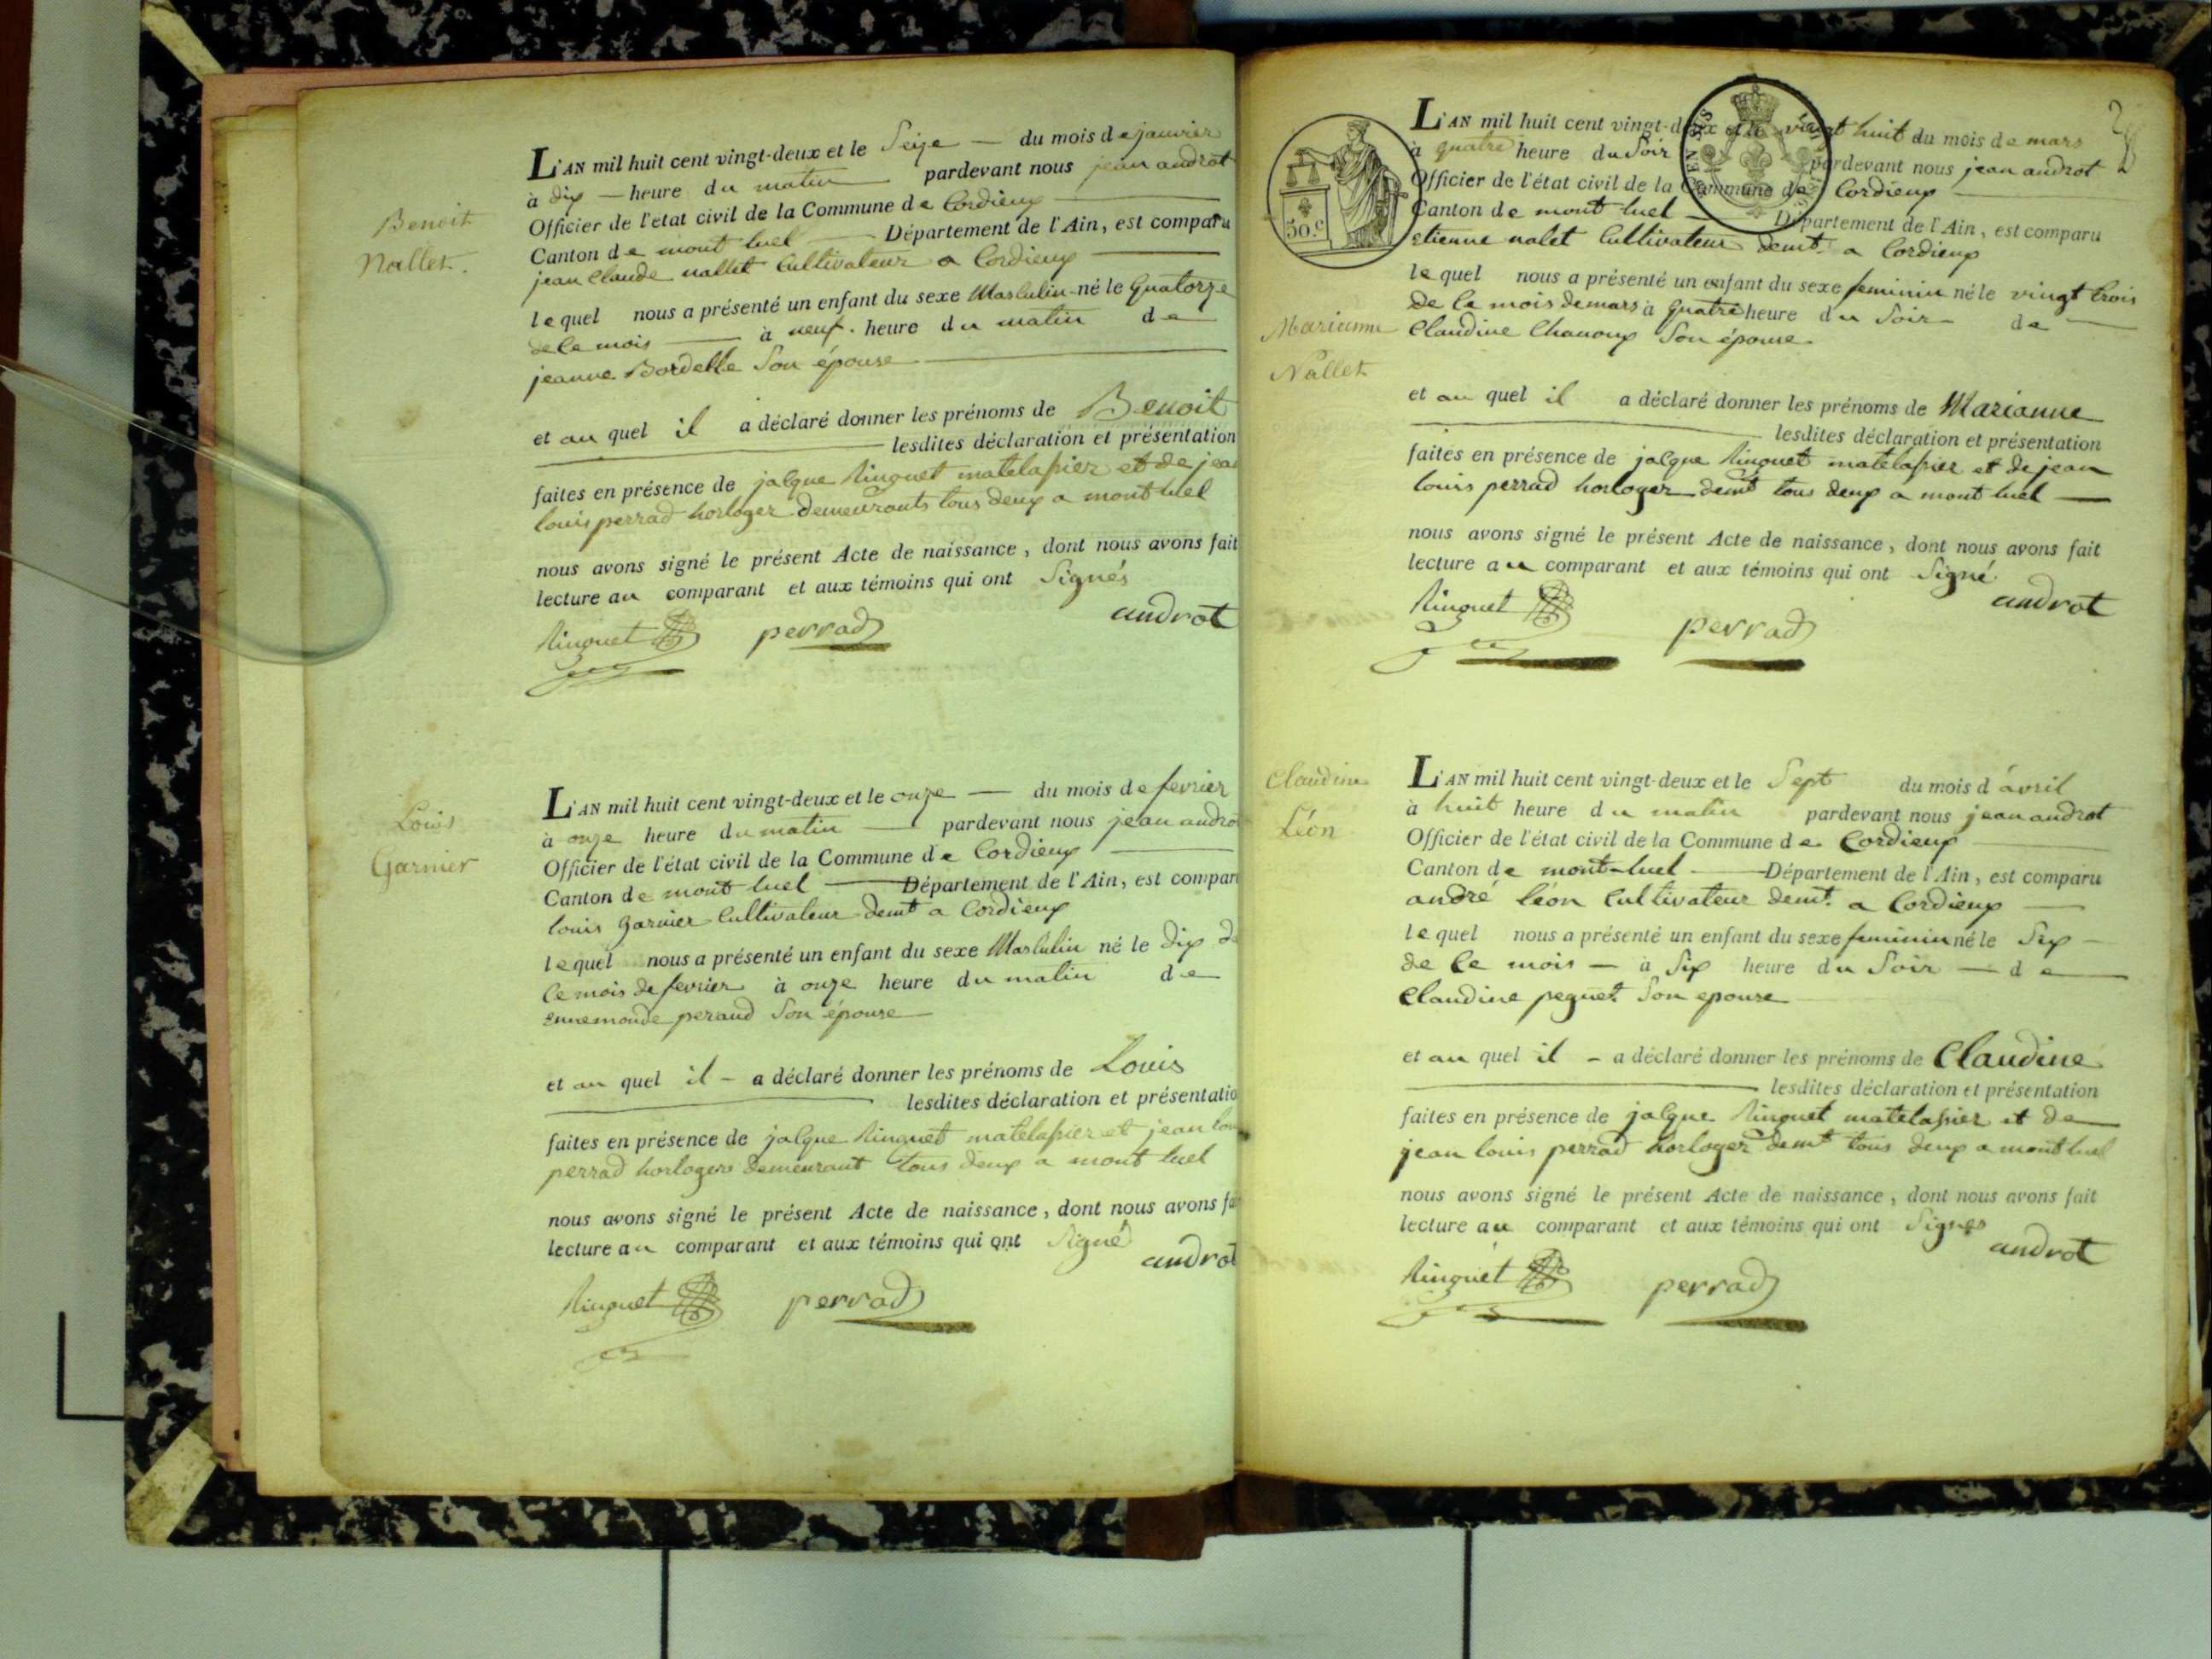 Benoit
Nallet.
L'AN mil huit cent vingt-deux et le Seize — du mois de janvier
à dix — heure du matin pardevant nous jean androt
Officier de l'etat civil de la Commune de Cordieux
Canton de mont luel — Département de l'Ain, est comparu
jean Claude nallet Cultivateur a Cordieux
lequel nous a présenté un enfant du sexe Masculin né le Quatorze
de ce mois — à neuf. heure du matin de
jeanne Bordelle Son épouse
et au quel il a déclaré donner les prénoms de Benoit
lesdites déclaration et présentation
faites en présence de jacque Rinquet matelassier et de jea
louis perrad horloger demeurants tous deux a mont luel
nous avons signé le présent Acte de naissance, dont nous avons fait
lecture au comparant et aux témoins qui ont Signés
androt
Rinquet perrad
Louis
Garnier
L'AN mil huit cent vingt-deux et le onze — du mois de fevrier
à onze heure du matin — pardevant nous jean andro
Officier de l'état civil de la Commune de Cordieux
Canton de mont luel — Département de l'Ain, est compar
louis Garnier Cultivateur demt a Cordieux
lequel nous a présenté un enfant du sexe Masculin né le Dix d
ce mois de fevrier à onze heure du matin de
Ennemonde peraud Son épouse
et au quel il - a déclaré donner les prénoms de Louis
lesdites déclaration et présentatio
faites en présence de jacque Rinquet matelassier et jean lou
perrad horloger demeurant tous deux a mont luel
nous avons signé le présent Acte de naissance, dont nous avons fa
lecture au comparant et aux témoins qui ont Signé
androt
Rinquet perrad
50.c
2
L'AN mil huit cent vingt-deux et le vingt huit du mois de mars
à quatre heure du Soir pardevant nous jean androt
Officier de l'état civil de la Commune de Cordieux
Canton de mont luel — Département de l'Ain, est comparu
etienne nalet Cultivateur demt. a Cordieux
lequel nous a présenté un enfant du sexe feminin né le vingt trois
de ce mois de mars à Quatre heure du Soir - de
Claudine Chanoux Son épouse
Marianne
Nallet
et au quel il a déclaré donner les prénoms de Marianne
lesdites déclaration et présentation
faites en présence de jacque Rinquet matelassier et de jean
louis perrad horloger demt tous deux a mont luel —
nous avons signé le présent Acte de naissance, dont nous avons fait
lecture au comparant et aux témoins qui ont Signé
androt
Rinquet perrad
Claudine
Léon
L'AN mil huit cent vingt-deux et le Sept du mois d'avril
à huit heure du matin pardevant nous jean androt
Officier de l'état civil de la Commune de Cordieux
Canton de mont-luel — Département de l'Ain, est comparu
andré léon Cultivateur demt. a Cordieux —
lequel nous a présenté un enfant du sexe feminin né le Six -
de ce mois — à Six heure du Soir — de
Claudine peguet Son epouse
et au quel il - a déclaré donner les prénoms de Claudine
lesdites déclaration et présentation
faites en présence de jacque Rinquet matelassier et de
jean louis perrad horloger demt tous deux a mont luel
nous avons signé le présent Acte de naissance, dont nous avons fait
lecture au comparant et aux témoins qui ont Signés
androt
Rinquet perrad